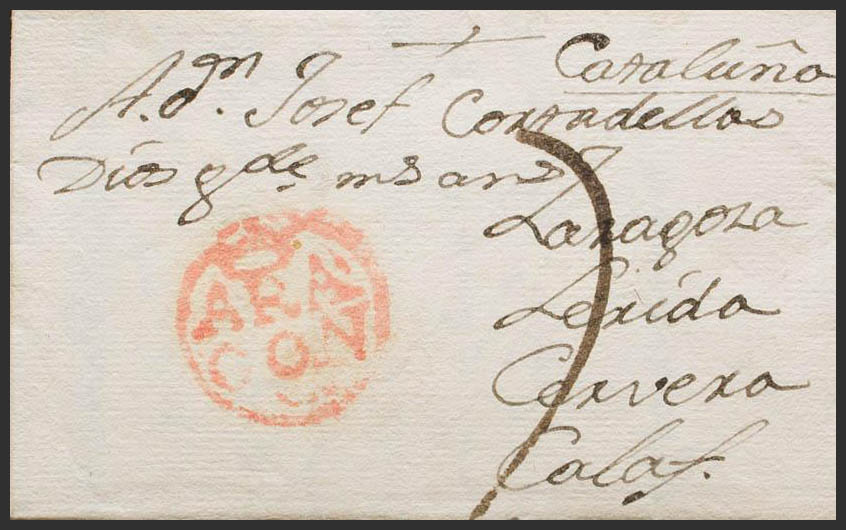 Cataluña
A. dn. Josef Cortadellas
Dios gde ms ans
Zaragoza
Lerida
Cervera
Calaf.
ARA
GON